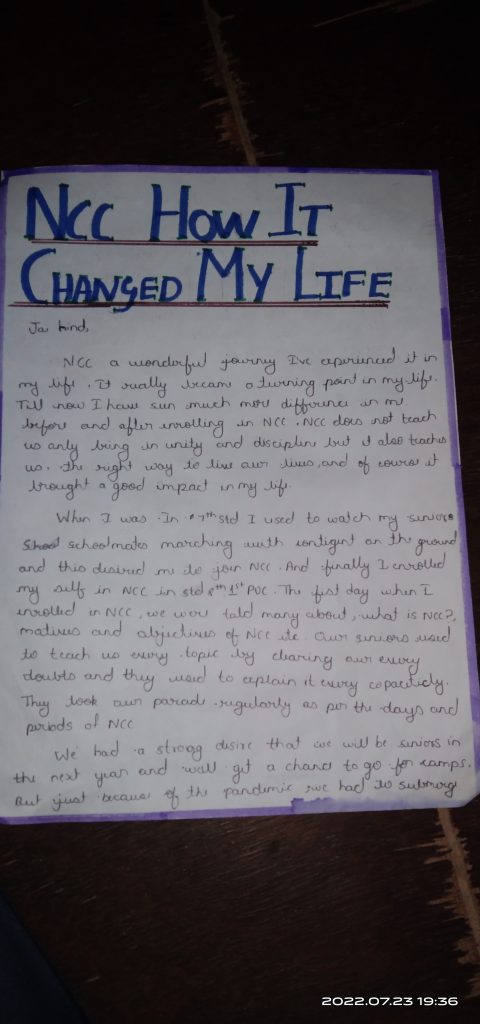 NCC HOW IT
CHANGED MY LIFE
Jai hind,
NCC a wonderful journey I've experienced it in
my life. It really became a turning point in my life.
Till now I have seen much more difference in me
before and after enrolling in NCC. NCC does not teach
us only being in unity and discipline but it also teaches
us. the right way to live our lives, and of course it
brought a good impact in my life.
When I was In 7th std I used to watch my seniors
schoolmates marching with contigent on the ground
and this desired me to join NCC. And finally I enrolled
my self in NCC in std 8th 1st PUC. The fist day when I
enrolled in NCC, we were told many about, what is NCC?,
motives and objectives of NCC etc. Our seniors used
to teach us every topic by clearing our every
doubts and they used to explain it every
They took our parade regularly as per the days and
periods of NCC
We had a strong desire that we will be seniors in
the next year and will get a chance to go for camps.
But just because of the pandemic we had to submerge
2022.07.23 19:36